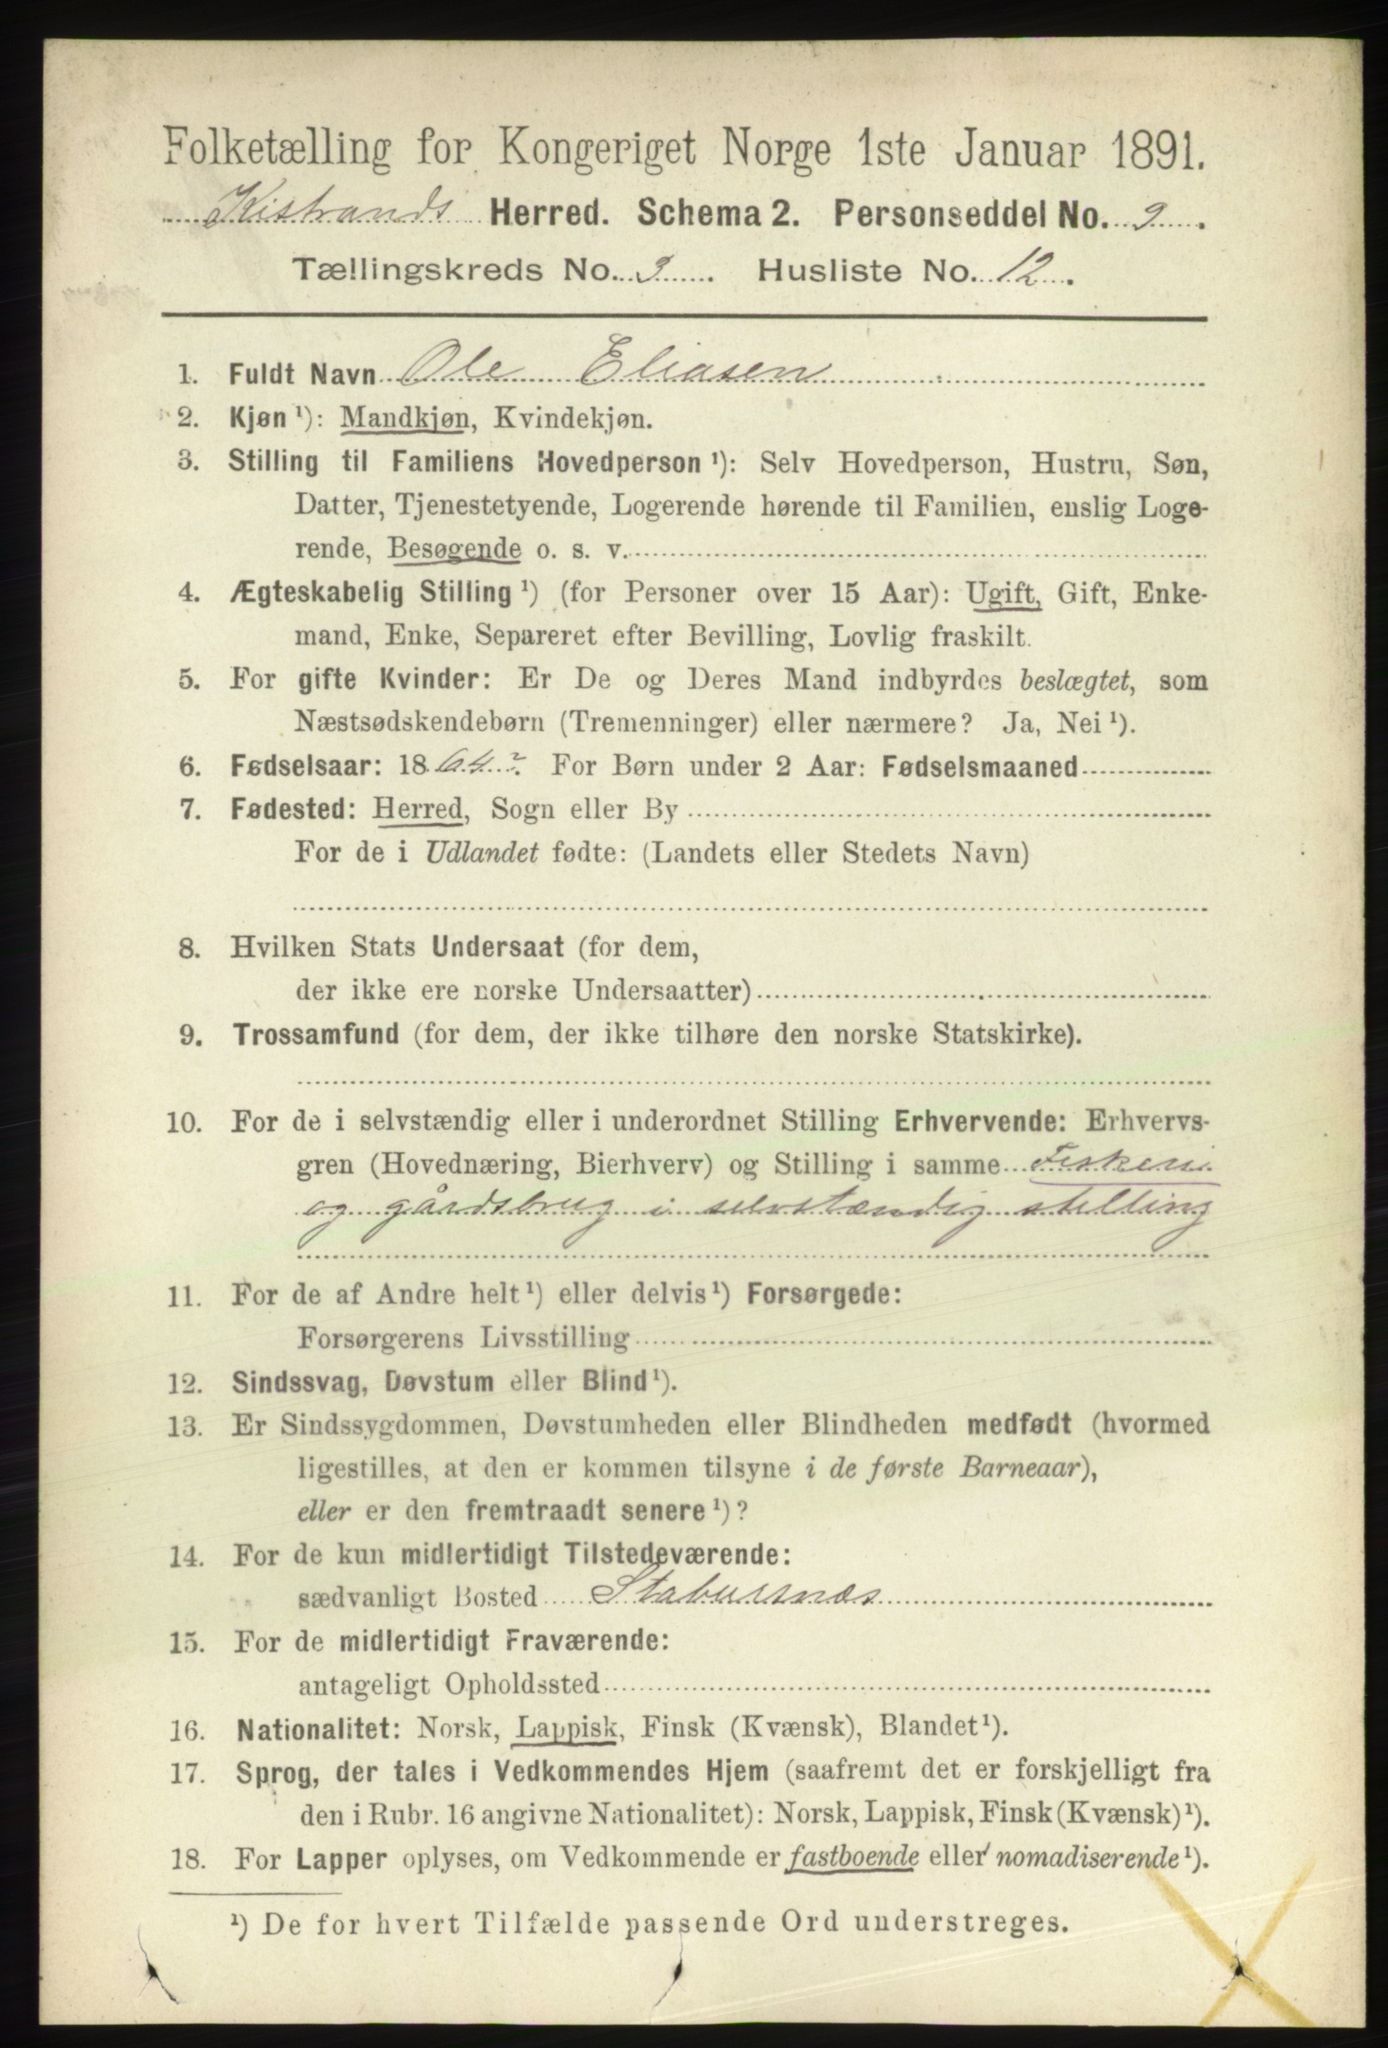 Folketælling for Kongeriget Norge 1ste Januar 1891.
Kistrands Herred. Schema 2. Personseddel No. 9.
Tællingskreds No. 3. Husliste No. 12.
1. Fuldt Navn Ole Eliasen
2. Kjøn ¹): Mandkjøn, Kvindekjøn.
3. Stilling til Familiens Hovedperson ¹): Selv Hovedperson, Hustru, Søn,
Datter, Tjenestetyende, Logerende hørende til Familien, enslig Loge-
rende, Besøgende o. s. v.
4. Ægteskabelig Stilling ¹) (for Personer over 15 Aar): Ugift, Gift, Enke-
mand, Enke, Separeret efter Bevilling, Lovlig fraskilt.
5. For gifte Kvinder: Er De og Deres Mand indbyrdes beslægtet, som
Næstsødskendebørn (Tremenninger) eller nærmere? Ja, Nei ¹).
6. Fødselsaar: 1864?. For Børn under 2 Aar: Fødselsmaaned
7. Fødested: Herred, Sogn eller By
For de i Udlandet fødte: (Landets eller Stedets Navn)
8. Hvilken Stats Undersaat (for dem,
der ikke ere norske Undersaatter)
9. Trossamfund (for dem, der ikke tilhøre den norske Statskirke).
10. For de i selvstændig eller i underordnet Stilling Erhvervende: Erhvervs-
gren (Hovednæring, Bierhverv) og Stilling i samme Fiskeri
og gårdsbrug i selvstændig stilling
11. For de af Andre helt ¹) eller delvis ¹) Forsørgede:
Forsørgerens Livsstilling
12. Sindssvag, Døvstum eller Blind ¹).
13. Er Sindssygdommen, Døvstumheden eller Blindheden medfødt (hvormed
ligestilles, at den er kommen tilsyne i de første Barneaar),
eller er den fremtraadt senere ¹)?
14. For de kun midlertidigt Tilstedeværende:
sædvanligt Bosted Stabursnæs
15. For de midlertidigt Fraværende:
antageligt Opholdssted
16. Nationalitet: Norsk, Lappisk, Finsk (Kvænsk), Blandet ¹).
17. Sprog, der tales i Vedkommendes Hjem (saafremt det er forskjelligt fra
den i Rubr. 16 angivne Nationalitet): Norsk, Lappisk, Finsk (Kvænsk) ¹).
18. For Lapper oplyses, om Vedkommende er fastboende eller nomadiserende ¹).
¹) De for hvert Tilfælde passende Ord understreges.